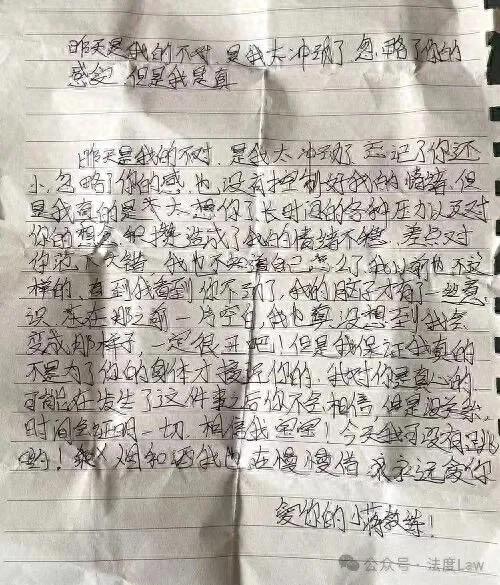 昨天是我的不对,是我太冲动了 忽略了你的
感配 但是我是真
昨天是我的不对,是我太冲动了 忘记了你还
小,忽略了你的感,也没有控制好我的情绪.但
是我真的是 太想你了,长时间的各种压力以及对
你的想念 积攒造成了我的情绪不稳,差点对
你犯了大错 我也不知道自己怎么了,我以前也不这
样的,直到我看到你不动了,我的脑子才有了一丝意
识 在那之前一片空白,我也真没想到我会
变成那样子,一定很丑吧!但是我保证我真的
不是为了你的身体才接近你的,我对你是真心的
可能在发生了这件事之后你不会相信,但是没关系,
时间会证明一切,相信我宝宝!今天我可没有
哟!烟和酒我也在慢慢借 永远爱你
爱你的小蒋教练!
公众号·法度Law